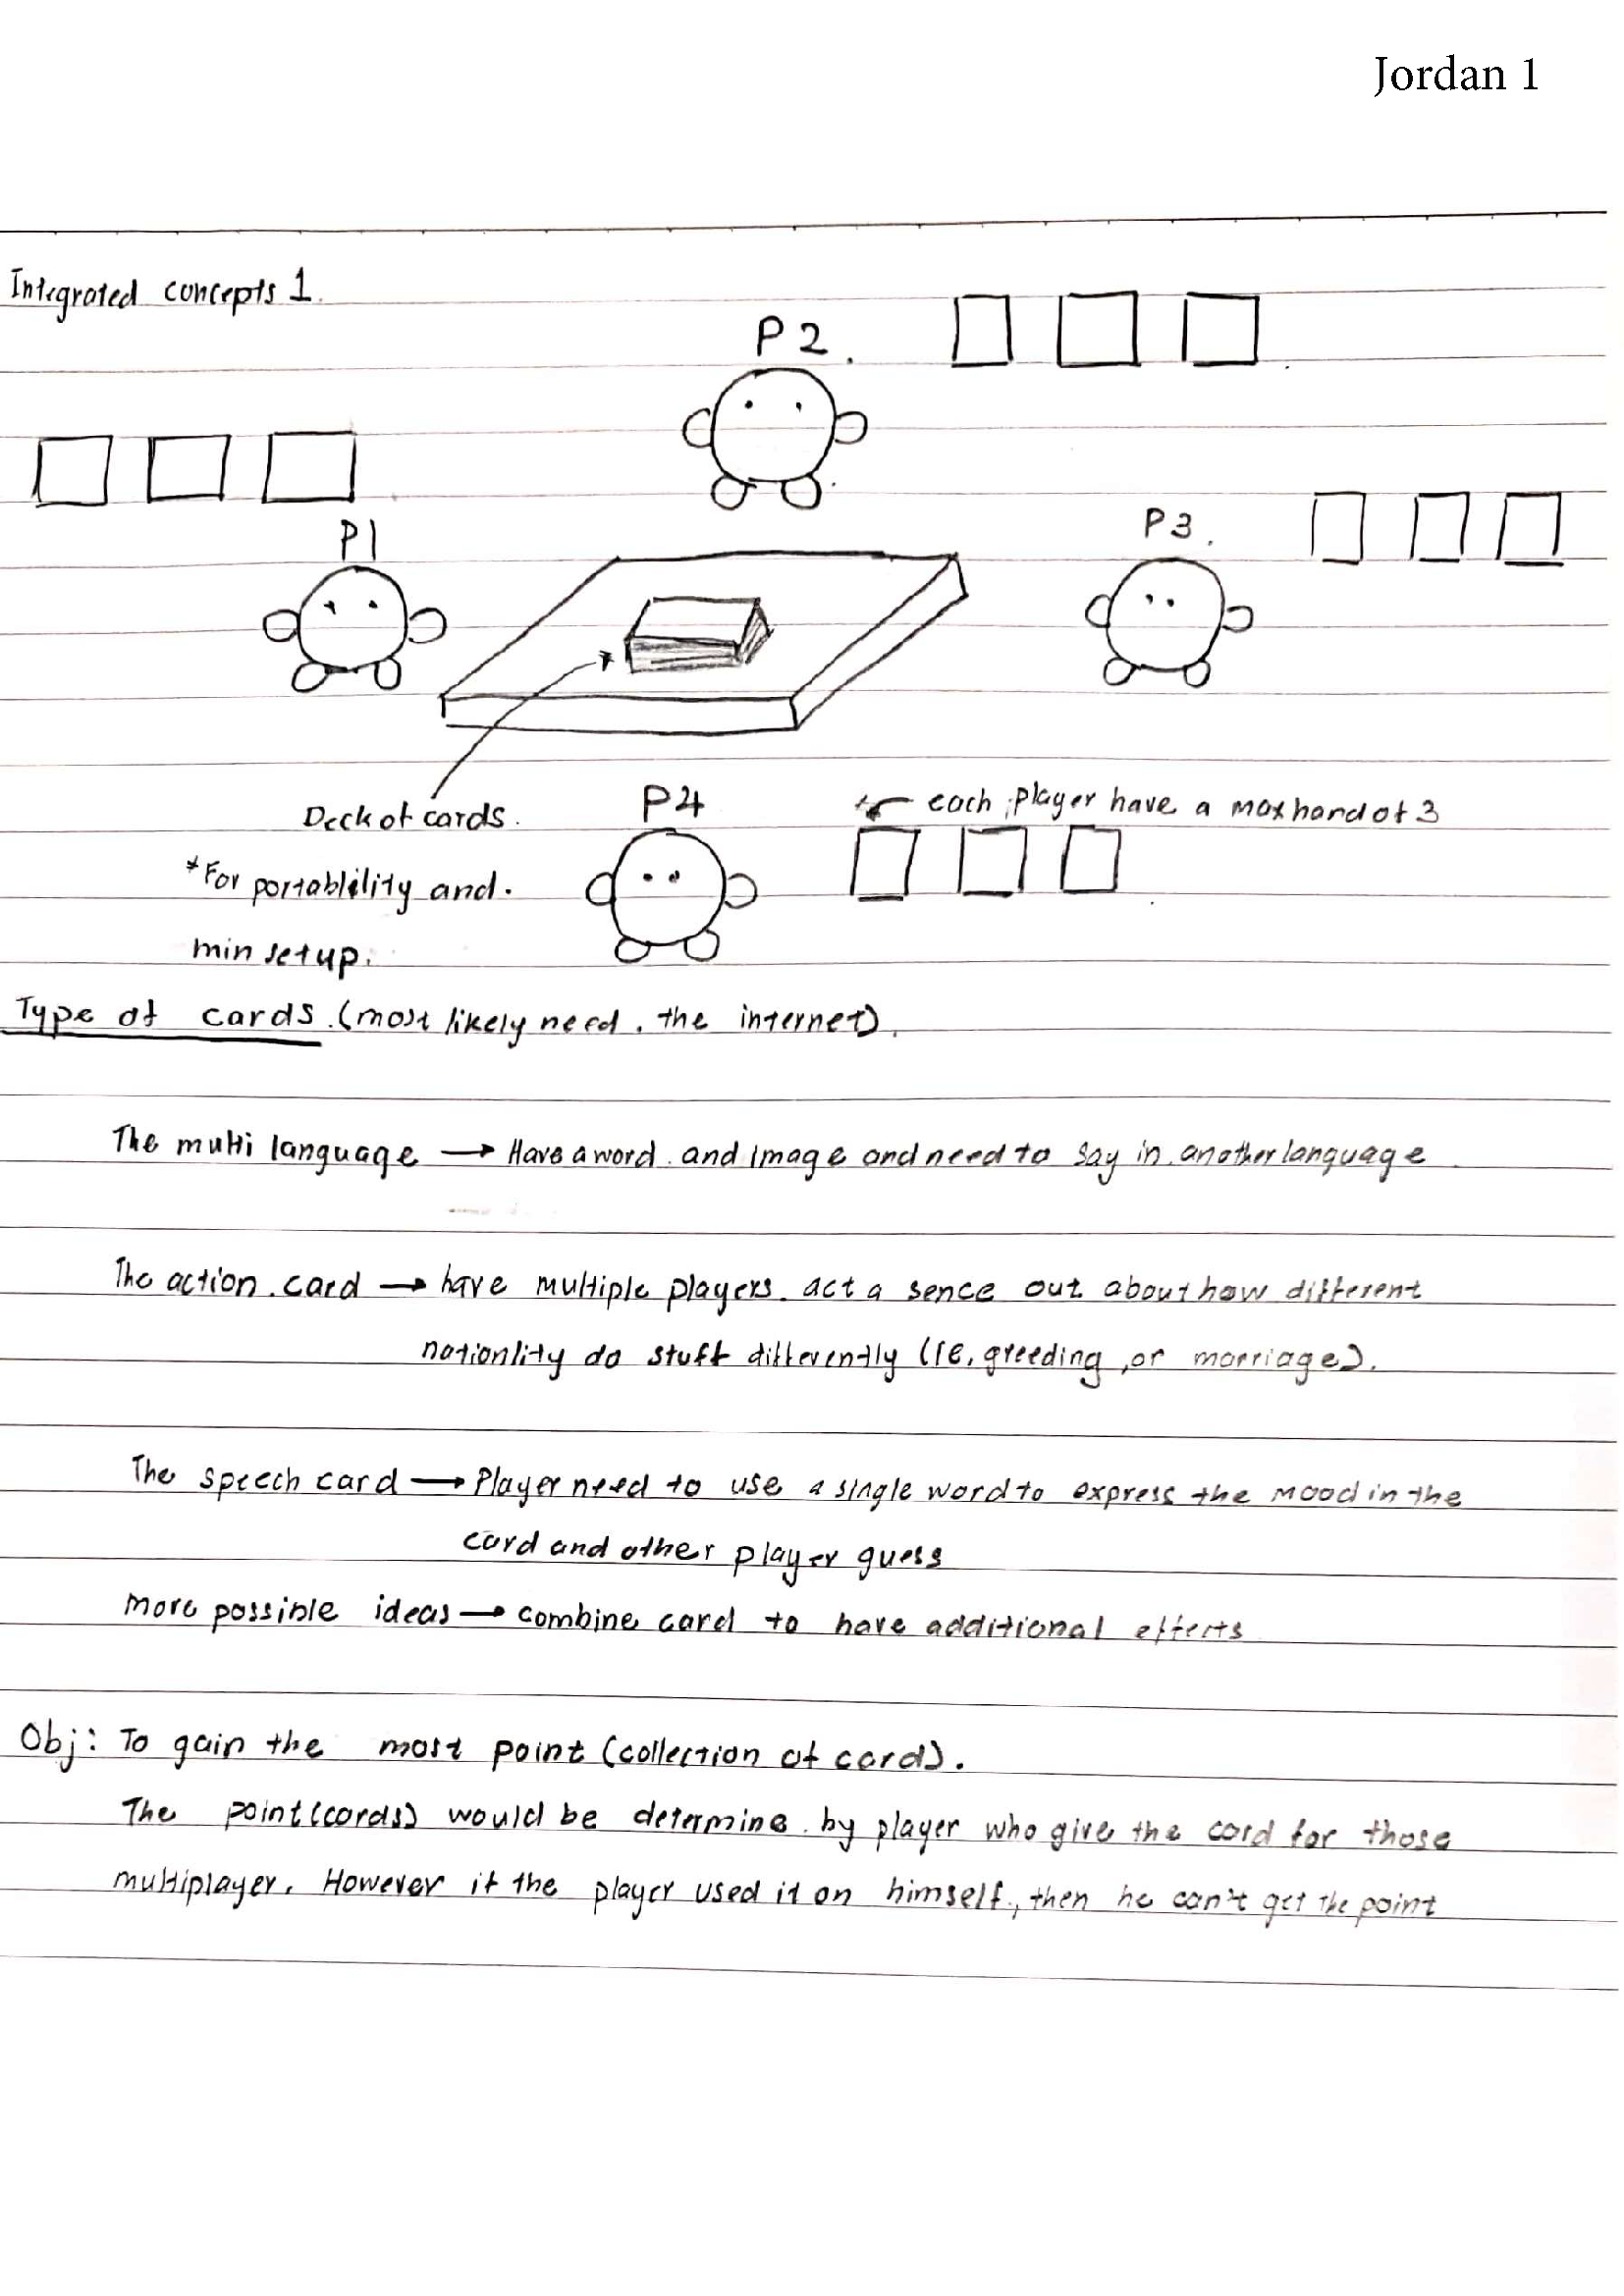 Jordan 1
Integrated concepts 1.
P2.
P1
P3.
Deck of cards.
P4
each player have a max hand of 3
*For portablility and.
min setup.
Type of cards. (most likely need. the internet).
The multi language → Have a word. and image and need to say in another language
The action card → have multiple players. act a sence out about how different
nationlity do stuff differently (IE, greeding, or marriage).
The speech card → Player need to use a single word to express the mood in the
card and other player guess
more possible ideas → combine card to have additional effects
Obj: To gain the most point (collection of card).
The point (cards) would be determine by player who give the card for those
multiplayer. However if the player used it on himself, then he can't get the point